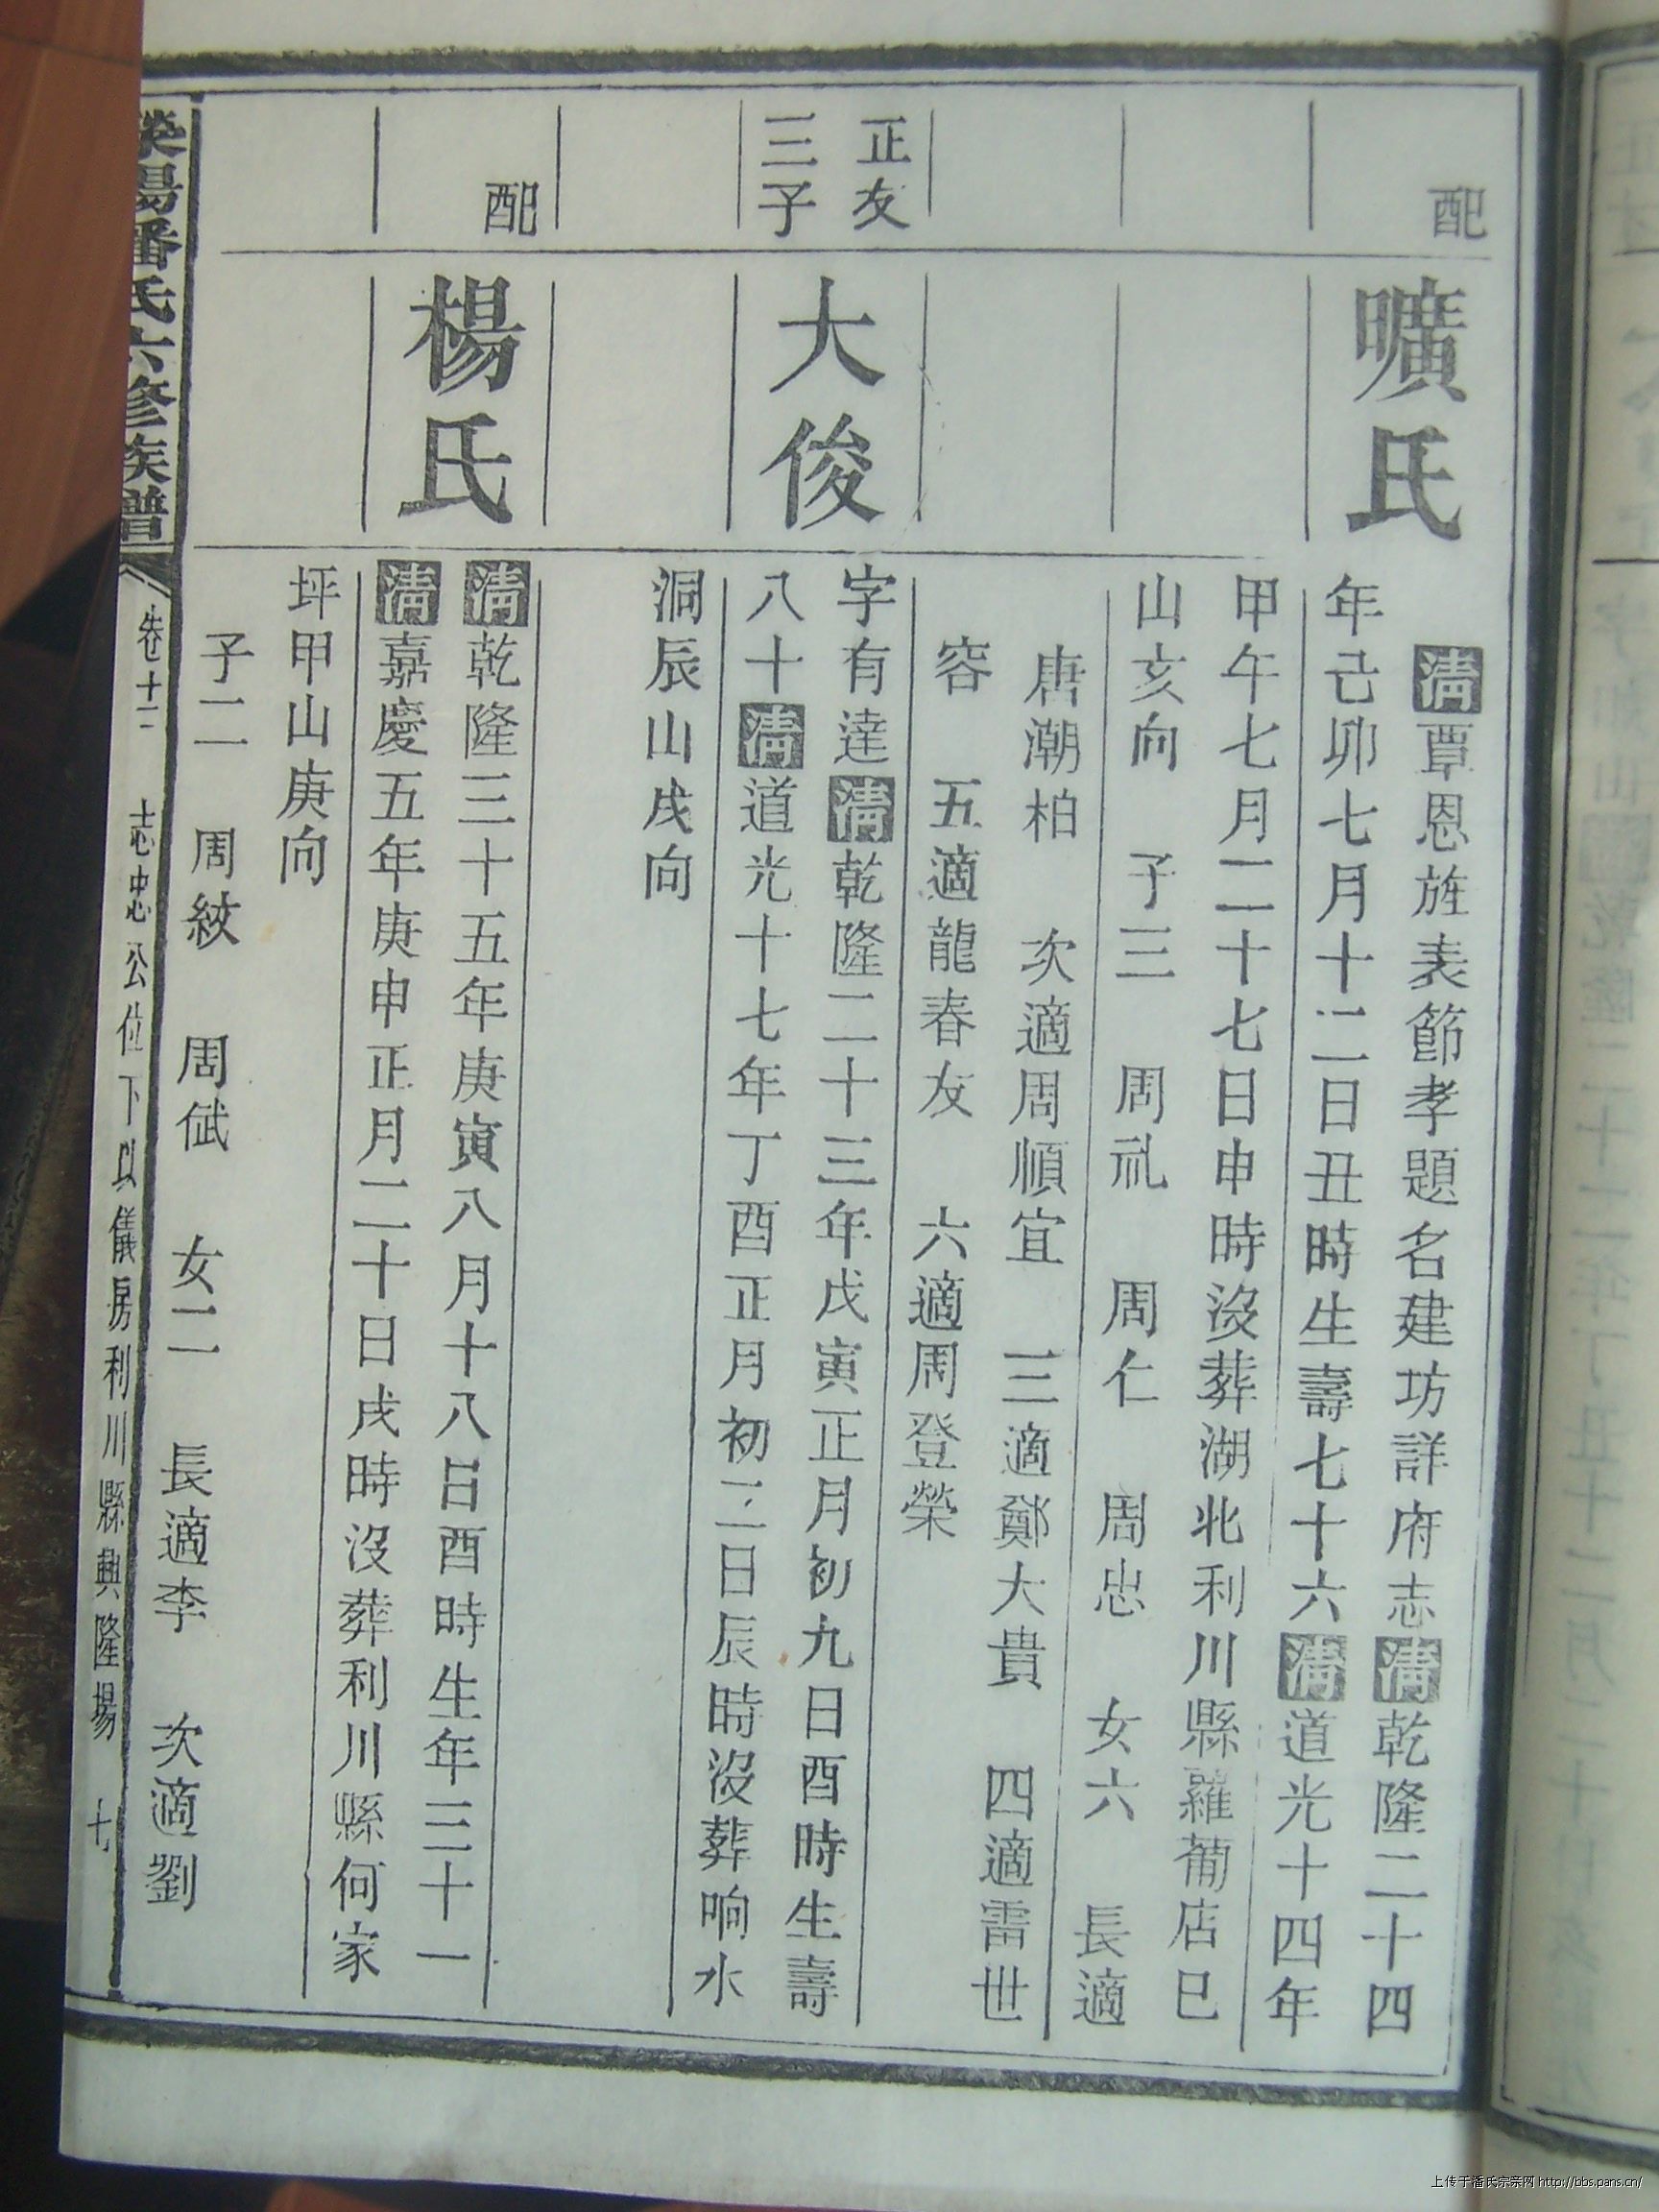 配
曠氏
清覃恩旌表節孝題名建坊詳府志清乾隆二十四
年己卯七月十二日丑時生壽七十六清道光十四年
甲午七月二十七日申時沒葬湖北利川縣羅葡店巳
山亥向 子三 周礼 周仁 周忠 女六 長適
唐潮柏 次適周順宜 三適鄭大貴 四適雷世
容 五適龍春友 六適周登榮
正友
三子
大俊
字有達清乾隆二十三年戊寅正月初九日酉時生壽
八十清道光十七年丁酉正月初二日辰時沒葬响水
洞辰山戌向
配
楊氏
清乾隆三十五年庚寅八月十八日酉時生年三十一
清嘉慶五年庚申正月二十日戌時沒葬利川縣何家
坪甲山庚向
子二 周紋 周斌 女二 長適李 次適劉
滎陽潘氏六修族譜
卷十三 志忠公位下以儀房利川縣興隆場
上传于潘氏宗亲网 http://bbs.pans.cn/